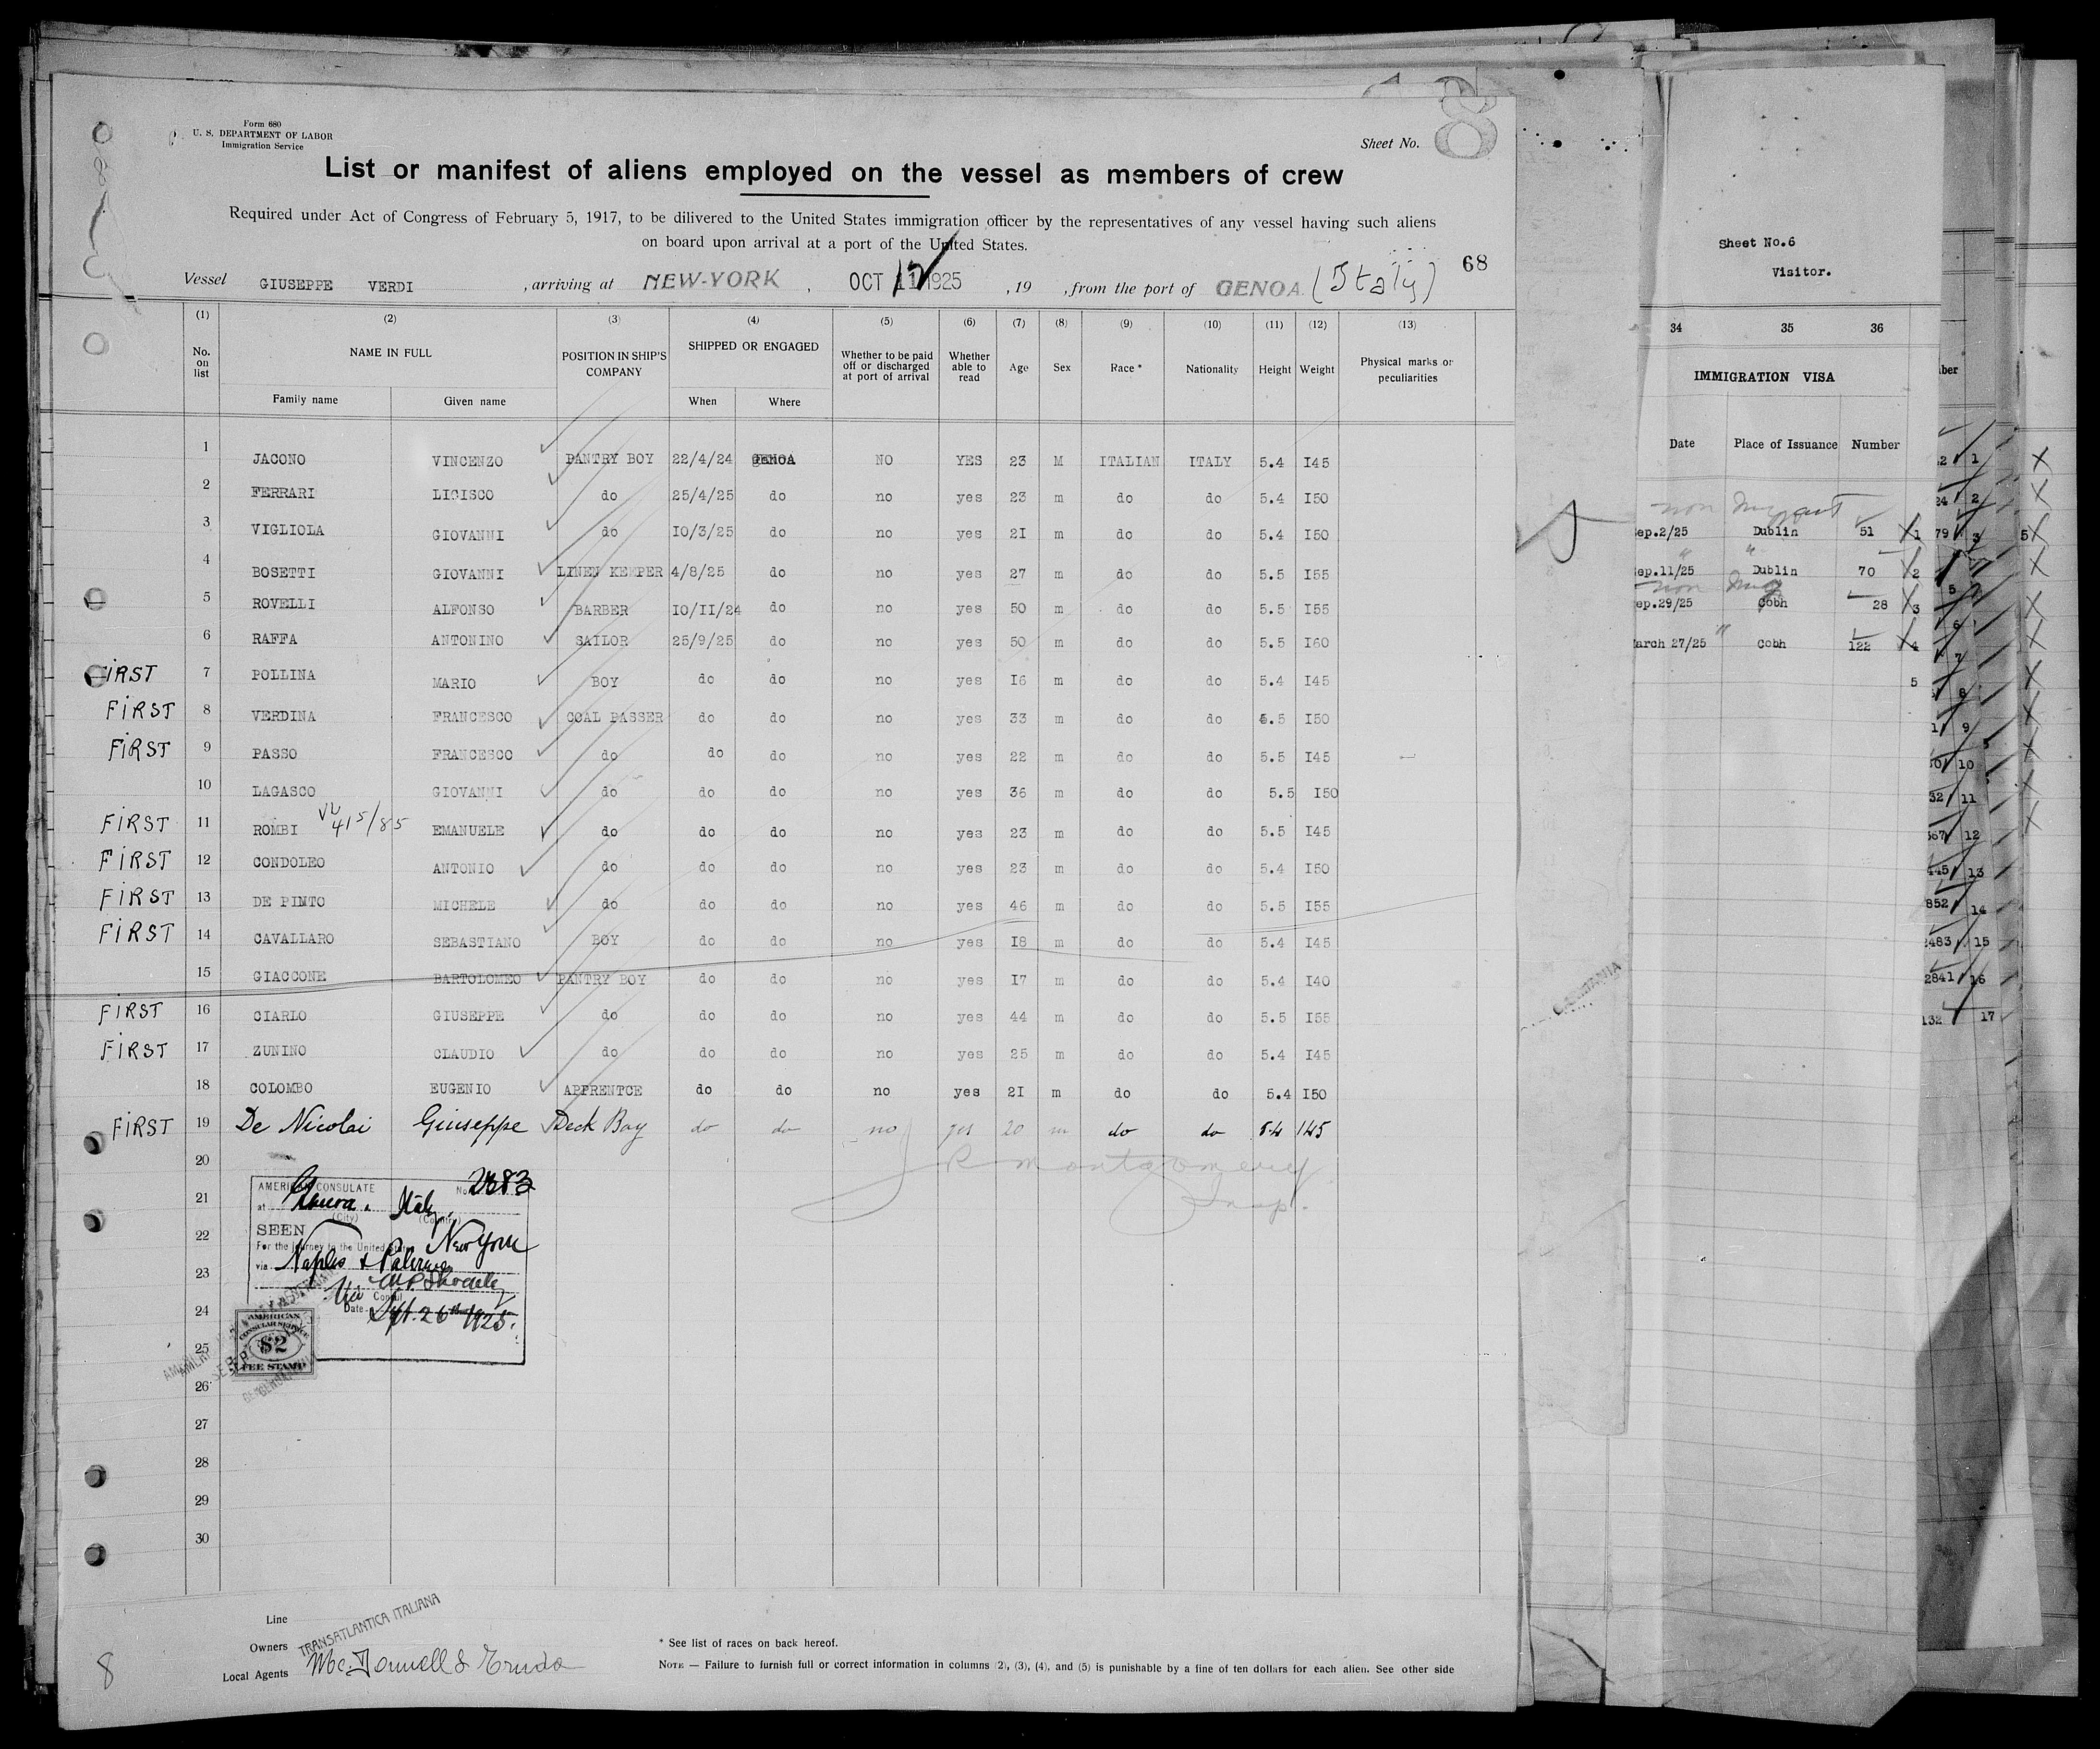 Form 680
U. S. DEPARTMENT OF LABOR
Immigration Service
Sheet No. 8
List or manifest of aliens employed on the vessel as members of crew
Required under Act of Congress of February 5, 1917, to be dilivered to the United States immigration officer by the representatives of any vessel having such aliens
on board upon arrival at a port of the United States.
68
Vessel GIUSEPPE VERDI , arriving at NEW-YORK , OCT 12 1925 , 19 , from the port of GENOA (Italy)
(1) (2) (3) (4) (5) (6) (7) (8) (9) (10) (11) (12) (13)
No. on list NAME IN FULL POSITION IN SHIP'S COMPANY SHIPPED OR ENGAGED Whether to be paid off or discharged at port of arrival Whether able to read Age Sex Race * Nationality Height Weight Physical marks or peculiarities
Family name Given name When Where
1 JACONO VINCENZO PANTRY BOY 22/4/24 GENOA NO YES 23 M ITALIAN ITALY 5.4 I45
2 FERRARI LICISCO do 25/4/25 do no yes 23 m do do 5.4 I50
3 VIGLIOLA GIOVANNI do IO/3/25 do no yes 2I m do do 5.4 I50
4 BOSETTI GIOVANNI LINEN KEEPER 4/8/25 do no yes 27 m do do 5.5 I55
5 ROVELLI ALFONSO BARBER IO/II/24 do no yes 50 m do do 5.5 I55
6 RAFFA ANTONINO SAILOR 25/9/25 do no yes 50 m do do 5.5 I60
FIRST 7 POLLINA MARIO BOY do do no yes I6 m do do 5.4 I45
FIRST 8 VERDINA FRANCESCO COAL PASSER do do no yes 33 m do do 5.5 I50
FIRST 9 PASSO FRANCESCO do do do no yes 22 m do do 5.5 I45
10 LAGASCO GIOVANNI do do do no yes 36 m do do 5.5 I50
FIRST 11 ROMBI 415/85 EMANUELE do do do no yes 23 m do do 5.5 I45
FIRST 12 CONDOLEO ANTONIO do do do no yes 23 m do do 5.4 I50
FIRST 13 DE PINTO MICHELE do do do no yes 46 m do do 5.5 I55
FIRST 14 CAVALLARO SEBASTIANO BOY do do no yes I8 m do do 5.4 I45
15 GIACCONE BARTOLOMEO PANTRY BOY do do no yes I7 m do do 5.4 I40
FIRST 16 CIARLO GIUSEPPE do do do no yes 44 m do do 5.5 I55
FIRST 17 ZUNINO CLAUDIO do do do no yes 25 m do do 5.4 I45
18 COLOMBO EUGENIO APPRENTCE do do no yes 2I m do do 5.4 I50
FIRST 19 De Nicolai Giuseppe Deck Boy do do no yes 20 m do do 5.4 145
20
21
22
23
24
25
26
27
28
29
30
R Montgomery
Insp.
AMERICAN CONSULATE No. 2683
at Genoa. Italy.
(City) (Country)
SEEN
For the journey to the United States New York
via Naples & Palermo
Vice Consul
Date Sept. 26th 1925.
AMERICAN
CONSULAR SERVICE
$2
FEE STAMP
Line
Owners TRANSATLANTICA ITALIANA
Local Agents
* See list of races on back hereof.
NOTE — Failure to furnish full or correct information in columns (2), (3), (4), and (5) is punishable by a fine of ten dollars for each alien. See other side
8
Sheet No.6
Visitor.
34 35 36
IMMIGRATION VISA
Date Place of Issuance Number
ep.2/25 Dublin 51 1
ep.11/25 Dublin 70 2
ep.29/25 Cobh 28 3
arch 27/25 Cobh 122 4
5